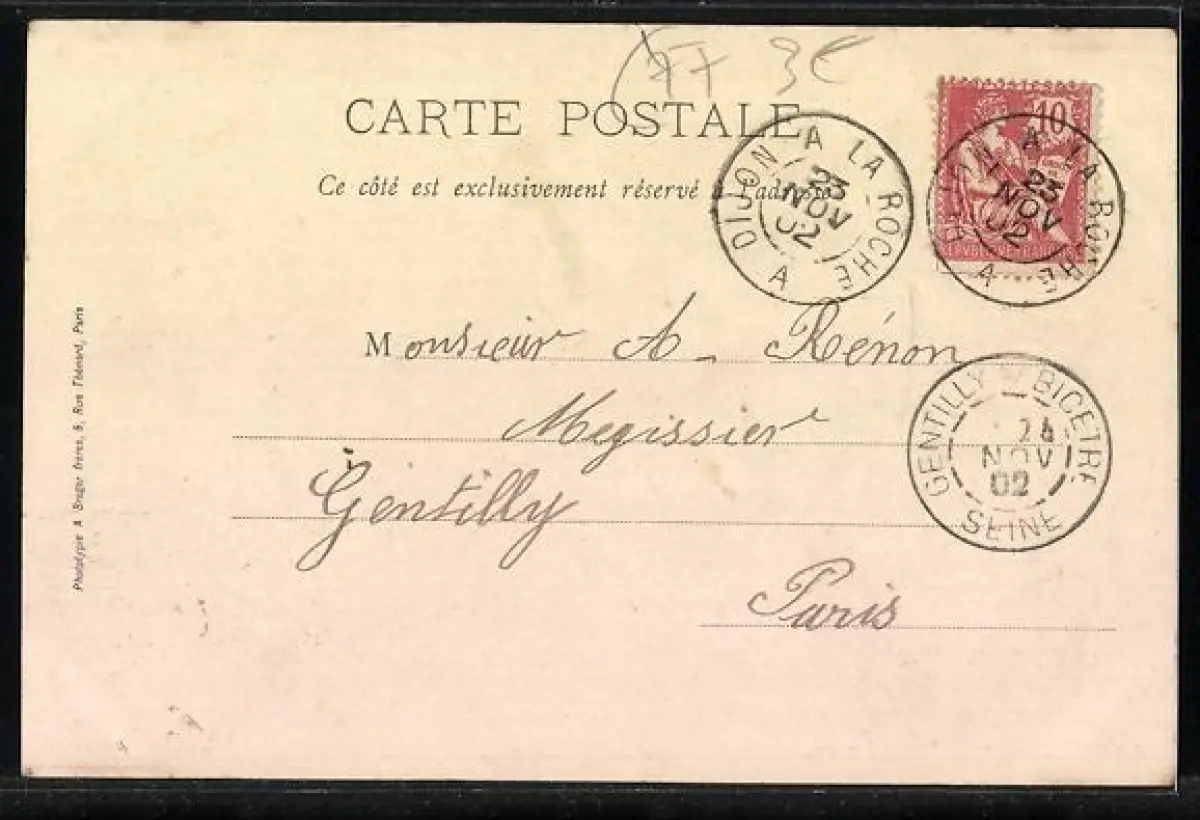 77 3€
CARTE POSTALE
Ce côté est exclusivement réservé à l'adresse
10
DIJON A LA ROCHE A
23
NOV
02
DIJON A LA ROCHE A
23
NOV
02
Monsieur A. Rénon
Megissier
Gentilly
Paris
GENTILLY BICETRE
NOV
02
SEINE
Phototypie A Breger frères, 9, Rue Thénard, Paris